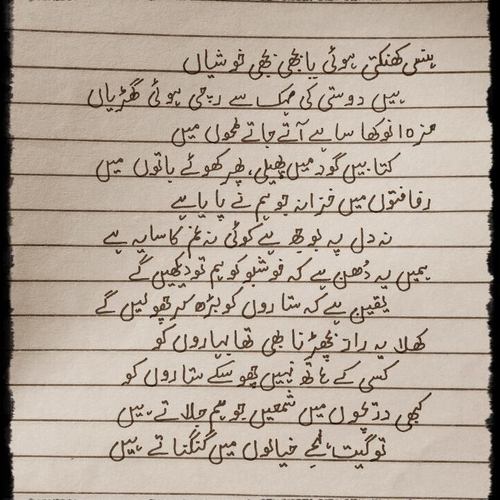 ہنسی کھنکتی ہوئی یا بجھی بجھی خوشیاں
ہیں دوستی کی مہک سے رچی ہوئی گھڑیاں
مزہ انوکھا سا ہے آتے جاتے لمحوں میں
کتابیں گود میں پھیلی، پھر کھوئے باتوں میں
رفاقتوں میں خزانہ جو ہم نے پایا ہے
نہ دل پہ بوجھ ہے کوئی نہ غم کا سایہ ہے
ہمیں یہ دُھن ہے کہ خوشبو کو ہم تو دیکھیں گے
یقین ہے کہ ستاروں کو بڑھ کر چھو لیں گے
کھلا یہ راز بچھڑنا بھی تھا بہاروں کو
کسی کے ہاتھ نہیں چھو سکے ستاروں کو
کبھی دریچوں میں شمعیں جو ہم جلاتے ہیں
تو گیت لمحے خیالوں میں گنگناتے ہیں